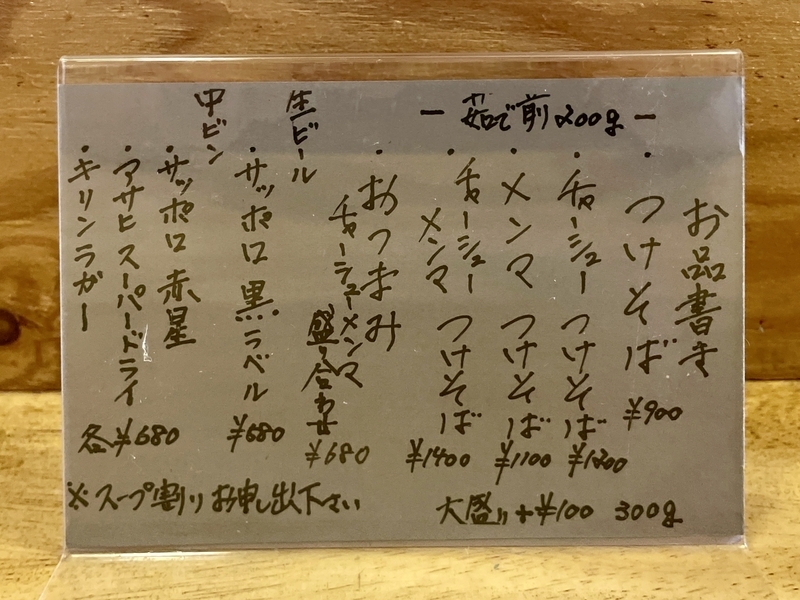 お品書き
ー茹で前200gー
・つけそば ¥900
・チャーシューつけそば ¥1200
・メンマつけそば ¥1100
・チャーシューメンマつけそば ¥1400
大盛り+¥100 300g
・おつまみ
チャーシューメンマ
盛り合わせ ¥680
生ビール
・サッポロ黒ラベル ¥680
中ビン
・サッポロ赤星
・アサヒスーパードライ
・キリンラガー
各¥680
※スープ割りお申し出下さい